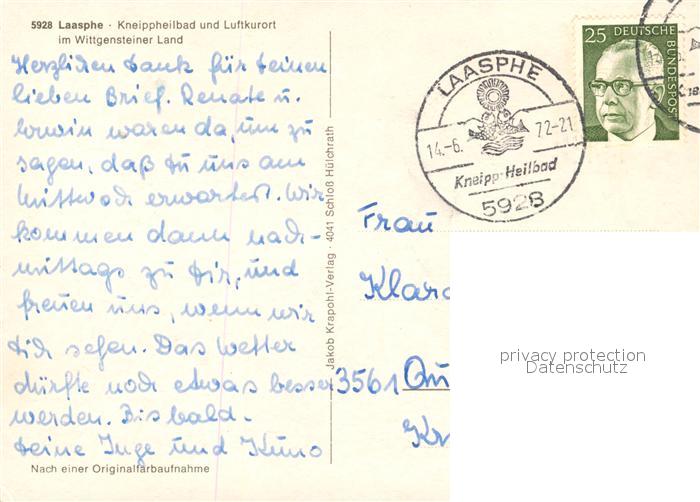 5928 Laasphe · Kneippheilbad und Luftkurort
im Wittgensteiner Land
Herzlichen Dank für Deinen
lieben Brief. Renate u.
Erwin waren da, um zu
sagen, daß Du uns am
Mittwoch erwartest. Wir
kommen dann nach-
mittags zu Dir, und
freuen uns, wenn wir
Dich sehen. Das Wetter
dürfte noch etwas besser
werden. Bis bald.
Deine Inge und Kuno
Nach einer Originalfarbaufnahme
Jakob Krapohl-Verlag · 4041 Schloß Hülchrath
LAASPHE
14.-6. 72-21
Kneipp-Heilbad
5928
25 DEUTSCHE
BUNDESPOST
Frau
Klar
3561 Qu
Kr
privacy protection
Datenschutz